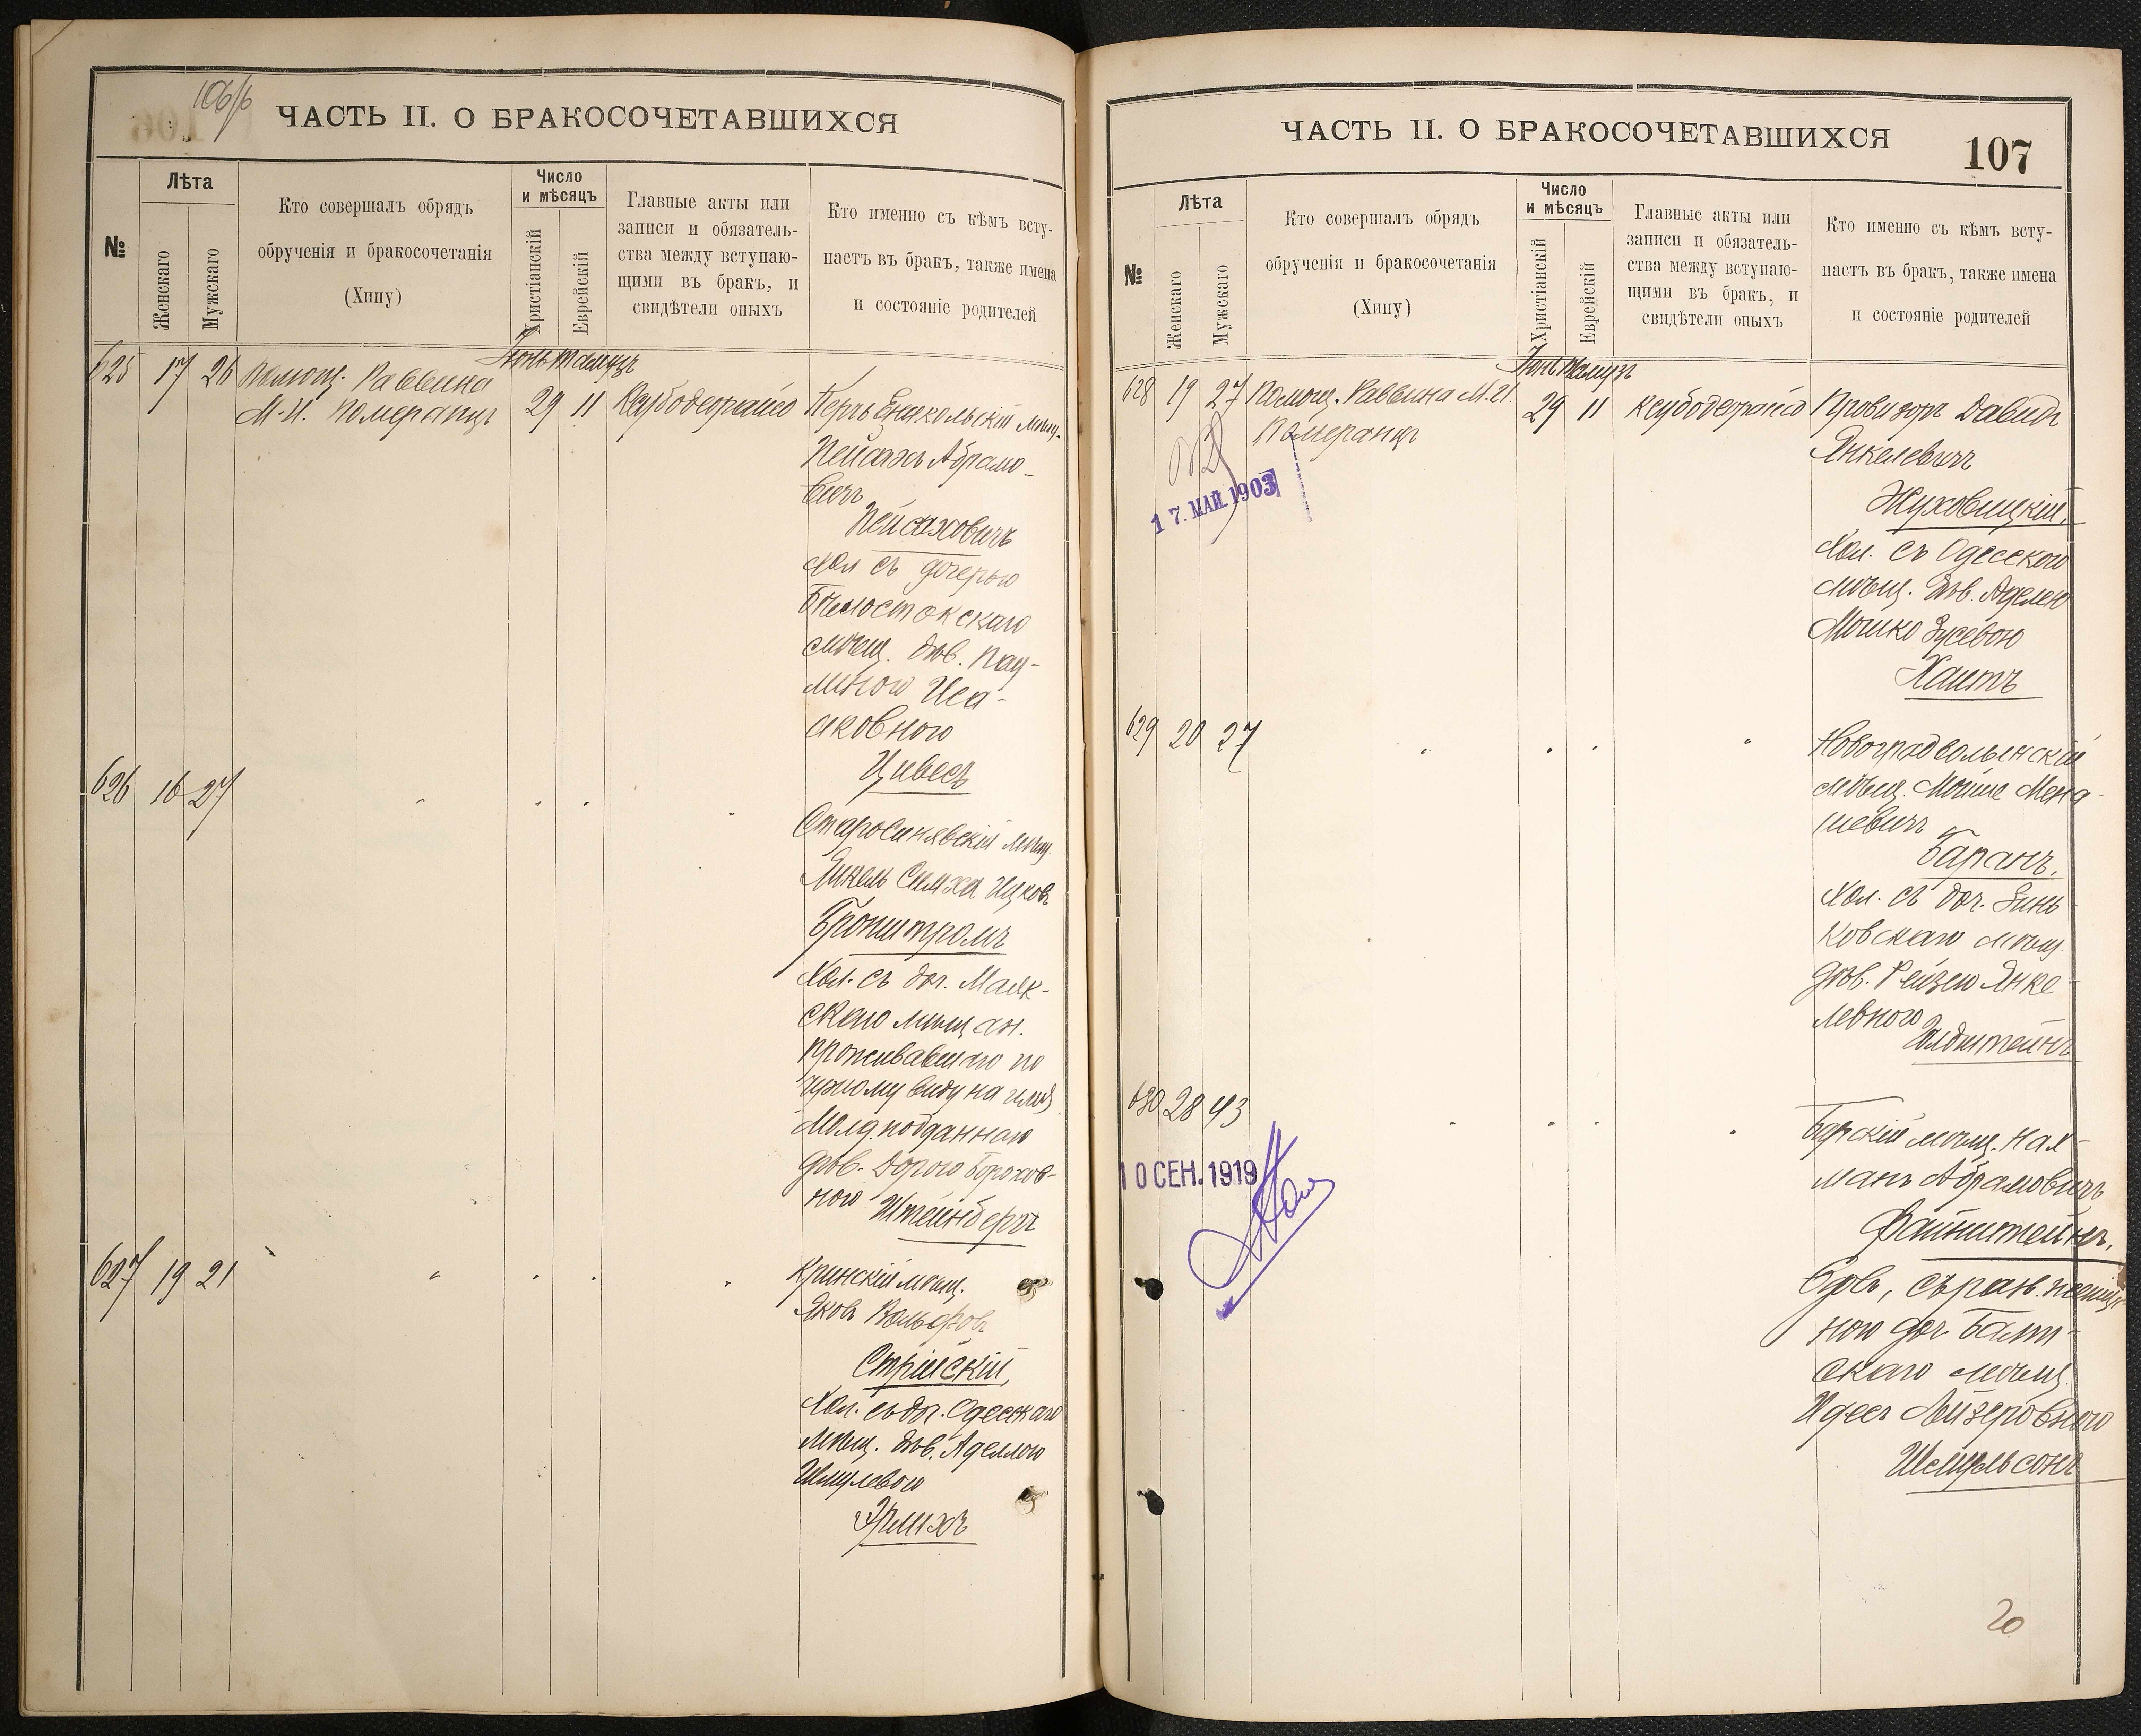 106/б
ЧАСТЬ II. О БРАКОСОЧЕТАВШИХСЯ
№
Лѣта
Женскаго
Мужскаго
Кто совершалъ обрядъ
обрученія и бракосочетанія
(Хипу)
Число
и мѣсяцъ
Христіанскій
Еврейскій
Главные акты или
записи и обязатель-
ства между вступаю-
щими въ бракъ, и
свидѣтели оныхъ
Кто именно съ кѣмъ всту-
паетъ въ бракъ, также имена
и состояніе родителей
Іюнь Тамузъ
625 17 26 Помощ. Раввина
М. И. Померанцъ 29 11 Ксубодеорайсо
Керчь Еникольскій мѣщ.
Пейсахъ Абрамо-
вичъ
Пейсаховичъ
хол съ дочерью
Бѣлостокскаго
мѣщ. дѣв. Пау-
линою Иса-
аковною
Цивесъ
626 16 27 " " " "
Старосинявскій мѣщ.
Янкель Симха Ицковъ
Бронштромъ
Хол. съ доч. Маяк-
скаго мѣщан.
проживавшаго по
чужому виду на имя
Молд. подданнаго
дѣв. Дорою Борохов-
ною Штейнбергъ
627 19 21 " " " "
Кринскій мѣщ.
Яковъ Вольфовъ
Стрійскій,
Хол. съ доч. Одесскаго
мѣщ. дѣв. Аделлою
Шмулевою
Эрлихъ
ЧАСТЬ II. О БРАКОСОЧЕТАВШИХСЯ
107
№
Лѣта
Женскаго
Мужскаго
Кто совершалъ обрядъ
обрученія и бракосочетанія
(Хипу)
Число
и мѣсяцъ
Христіанскій
Еврейскій
Главные акты или
записи и обязатель-
ства между вступаю-
щими въ бракъ, и
свидѣтели оныхъ
Кто именно съ кѣмъ всту-
паетъ въ бракъ, также имена
и состояніе родителей
Іюнь Тамузъ
628 19 27 Помощ. Раввина М. И.
Померанцъ 29 11 Ксубодеорайсо
17. МАЙ. 1903
Провизоръ Давидъ
Янкелевичъ
Жуховицкій,
Хол. съ Одесского
мѣщ. дѣв. Аделею
Мошко Зусевою
Хаитъ
629 20 27 " " " "
Новоградволынскій
мѣщ. Мойше Мена-
шевичъ
Баранъ,
Хол. съ доч. Зинь
ковскаго мѣщ.
дѣв. Рейзею Янке-
левною
Гольдштейнъ
630 28 43 " " " "
10 СЕН. 1919
Барскій мѣщ. Нах-
манъ Абрамовичъ
Файнштейнъ,
Вдов., съ
ною доч. Балт-
скаго мѣщ.
Идесъ Лейзеровною
Шмульсонъ
20